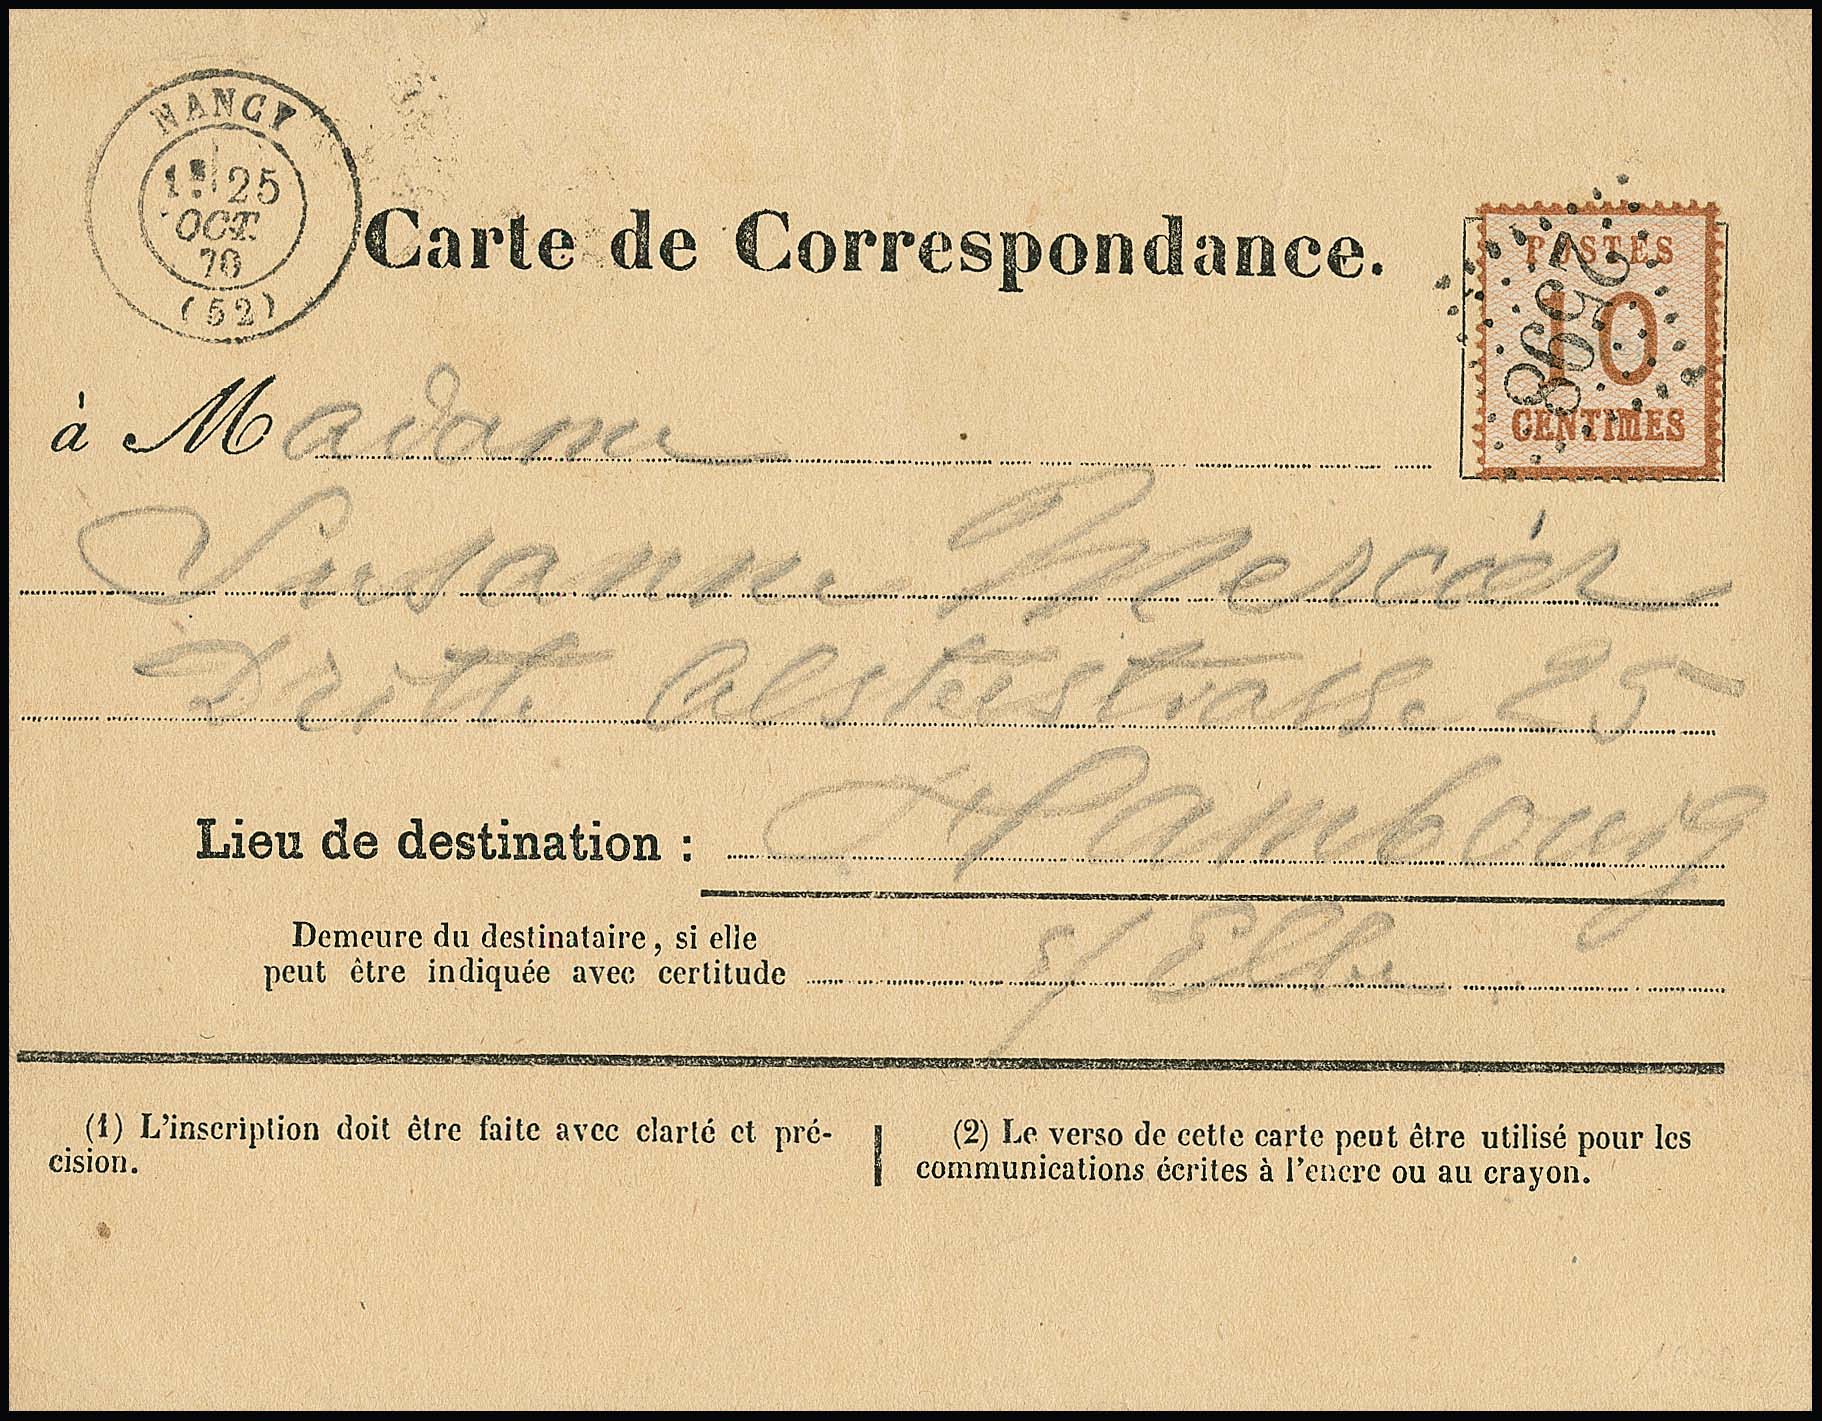 NANCY
1E 25
OCT.
70
(52)
Carte de Correspondance.
POSTES
10
CENTIMES
2598
à Madame
Susanne Mercier
Dritte Alsterstrasse 25
Lieu de destination : Hambourg
Demeure du destinataire, si elle
peut être indiquée avec certitude s/ Elbe
(1) L'inscription doit être faite avec clarté et pré-
cision.
(2) Le verso de cette carte peut être utilisé pour les
communications écrites à l'encre ou au crayon.